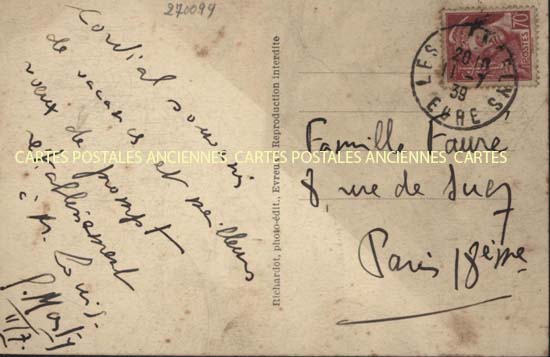 270099
Cordial souvenir
de vacances et meilleurs
vœux de prompt
rétablissement
à M. Louis.
11/7.
Richardot, photo-édit., Evreux Reproduction interdite
70
POSTES
LES
20
7
39
EURE
Famille Faure
8 rue de Suez
Paris 18ème
CARTES POSTALES ANCIENNES CARTES POSTALES ANCIENNES CARTES